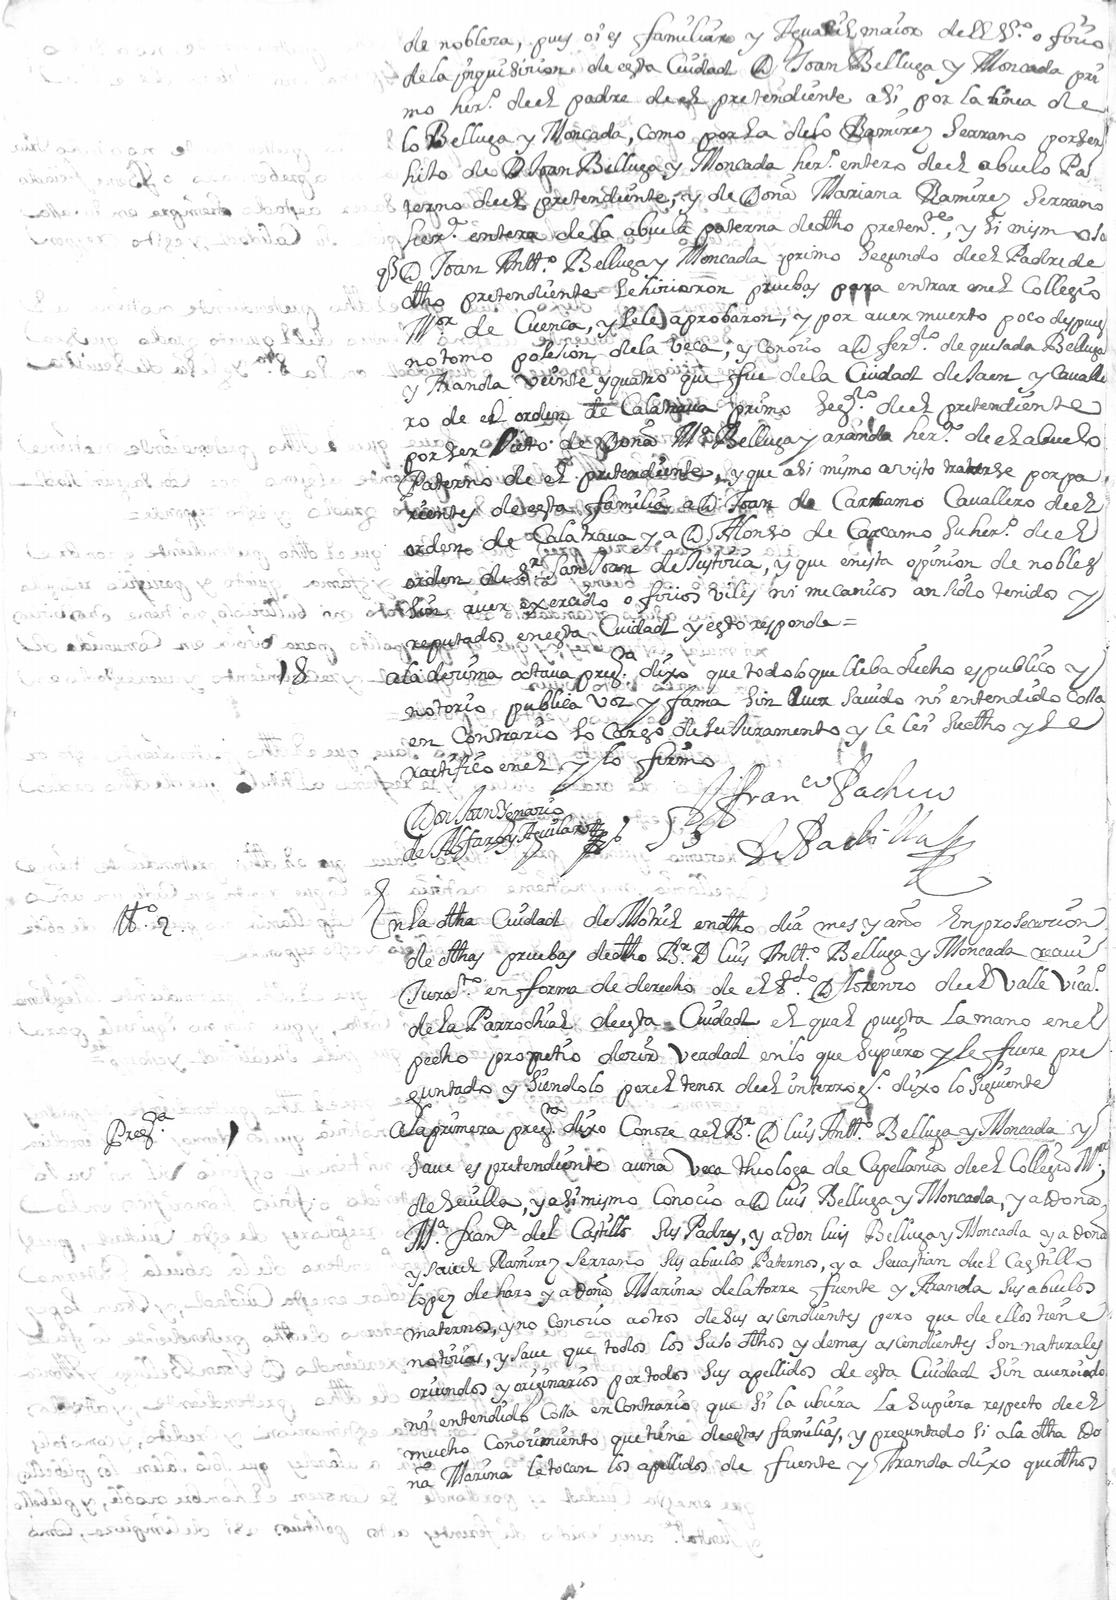 de nobleza, pues oi es familiar y Aguacil maior de el St.º oficio
de la ynquisicion de esta Ciudad D Joan Belluga y Moncada pri
mo her.º de el padre de el pretendiente asi por la linea de
lo Belluga y Moncada, como por la de lo Ramirez Serrano por ser
hijo de D Joan Belluga y Moncada her.º entero de el abuelo Pa
terno de el pretendiente, y de Doña Mariana Ramirez Serrano
her.ª entera de la abuela paterna de dtho preten.te, y si mismo
q̃ D Joan Antt.º Belluga y Moncada primo segundo de el Padre de
dtho pretendiente se hicieron pruebas para entrar en el Collegio
M.or de Cuenca, y se le aprobaron, y por aver muerto poco despues
no tomo posesion de la veca, y conocio a D fer.do de quesada Belluga
y Aranda veinte y quatro que fue de la Ciudad de Jaen y Cavalle
ro de el orden de Calatrava primo seg.do de el pretendiente
por ser Nieto de Doña M.ª Belluga y aranda her.ª de el abuelo
Paterno de el pretendiente, y que asi mismo a visto tratarse por pa
rientes de esta familia a D Joan de Carcamo Cavallero de el
orden de Calatrava y a D Alonso de Carcamo su her.º de el
orden de Sr San Joan de Justicia, y que en esta opinion de nobles
sin aver exercido oficios viles ni mecanicos an sido tenidos y
reputados en esta Ciudad y esto responde =
18 a la decima octava preg.ta dixo que todo lo que lleba dicho es publico y
notorio publica voz y fama sin aver savido ni entendido cossa
en Contrario so cargo de su Juramento y le lei su dtho y se
ractifico en el y lo firmo
Dor Joan Genario
de Alfaro y Aguilar
Fran.co Pacheco
de Padilla
tt.º 2. En la dtha Ciudad de Motril en dtho dia mes y año En prosecucion
de dthas pruebas de dtho B.r D luis Antt.º Belluga y Moncada recivi
Jura.to en forma de derecho de el L.do D Lorenzo de el Valle Vica.º
de la Parrochial de esta Ciudad el qual puesta la mano en el
pecho prometio decir verdad en lo que supiere y le fuere pre
guntado y siendolo por el tenor de el interrog.º dixo lo siguiente
Preg.ta 1 a la primera preg.ta dixo Conoze a el B.r D luis Antt.º Belluga y Moncada y
save es pretendiente a una veca theologa de Capellania de el Collegio M.or
de Sevilla, y asi mismo Conocio a D luis Belluga y Moncada, y a doña
M.ª fran.ca del Castillo sus Padres, y a don luis Belluga y Moncada y a doña
Ramirez Serrano sus abuelos Paternos, y a Sevastian de el Castillo
lopez de haro y a doña Marina de la torre fuente y Aranda sus abuelos
maternos, y no Conocio a otros de sus ascendientes pero que de ellos tiene
noticias, y save que todos los suso dthos y demas ascendientes son naturales
oriundos y originarios por todos sus apellidos de esta Ciudad sin aver oido
ni entendido Cossa en Contrario que si la ubiera la supiera respecto de el
mucho Conocimiento que tiene de estas familias, y preguntado si a la dtha Do
ña Marina le tocan los apellidos de fuente y Aranda dixo que dthos